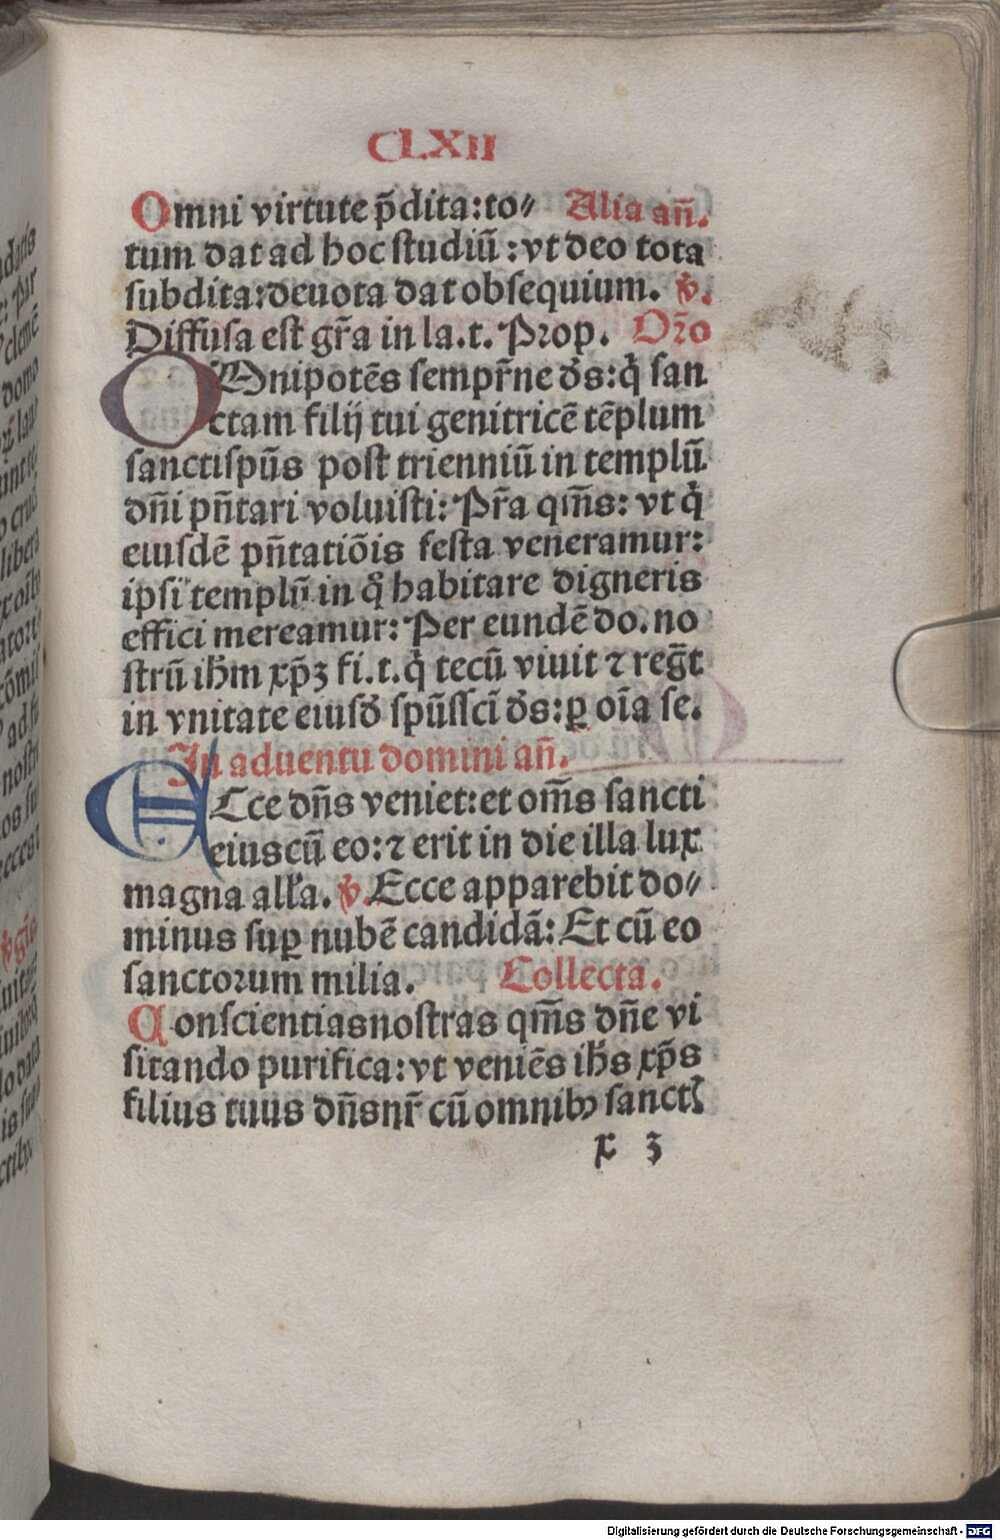 CLXII
Omni virtute p̄dita:to⸗ Alia an̄.
tum dat ad hoc studiū:vt deo tota
subdita:deuota dat obsequium. v̄.
Diffusa est gr̄a in la.t. Prop. Or̄o
OMnipotēs sempr̄ne ds̄:q̇ san
ctam filij tui genitricē tēplum
sanctispūs post trienniū in templū
dn̄i pn̄tari voluisti: Pr̄a qm̄s: vt q̇
eiusdē pn̄tatiōis festa veneramur:
ipsi templū in q̊ habitare digneris
effici mereamur: Per eundē do. no
strū ih̄m xp̄ꝫ fi.t.q̇ tecū viuit ⁊ reḡt
in vnitate eiusd̄ spūssci̅ ds̄:ꝑ oi̅a se.
In aduentu domini an̄.
ECce dn̄s veniet:et om̄s sancti
eius cū eo:⁊ erit in die illa lux
magna all̄a. v̄. Ecce apparebit do⸗
minus suꝑ nubē candidā: Et cū eo
sanctorum milia. Collecta.
Conscientias nostras qm̄s dn̄e vi
sitando purifica:vt veniēs ih̄s xp̄s
filius tuus dn̄s nr̄ cū omnibꝰ sanctꝭ
x 3
Digitalisierung gefördert durch die Deutsche Forschungsgemeinschaft - DFG